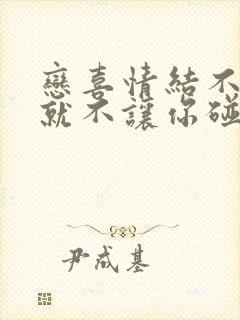 戀喜情結不
就不讓你碰
尹成基